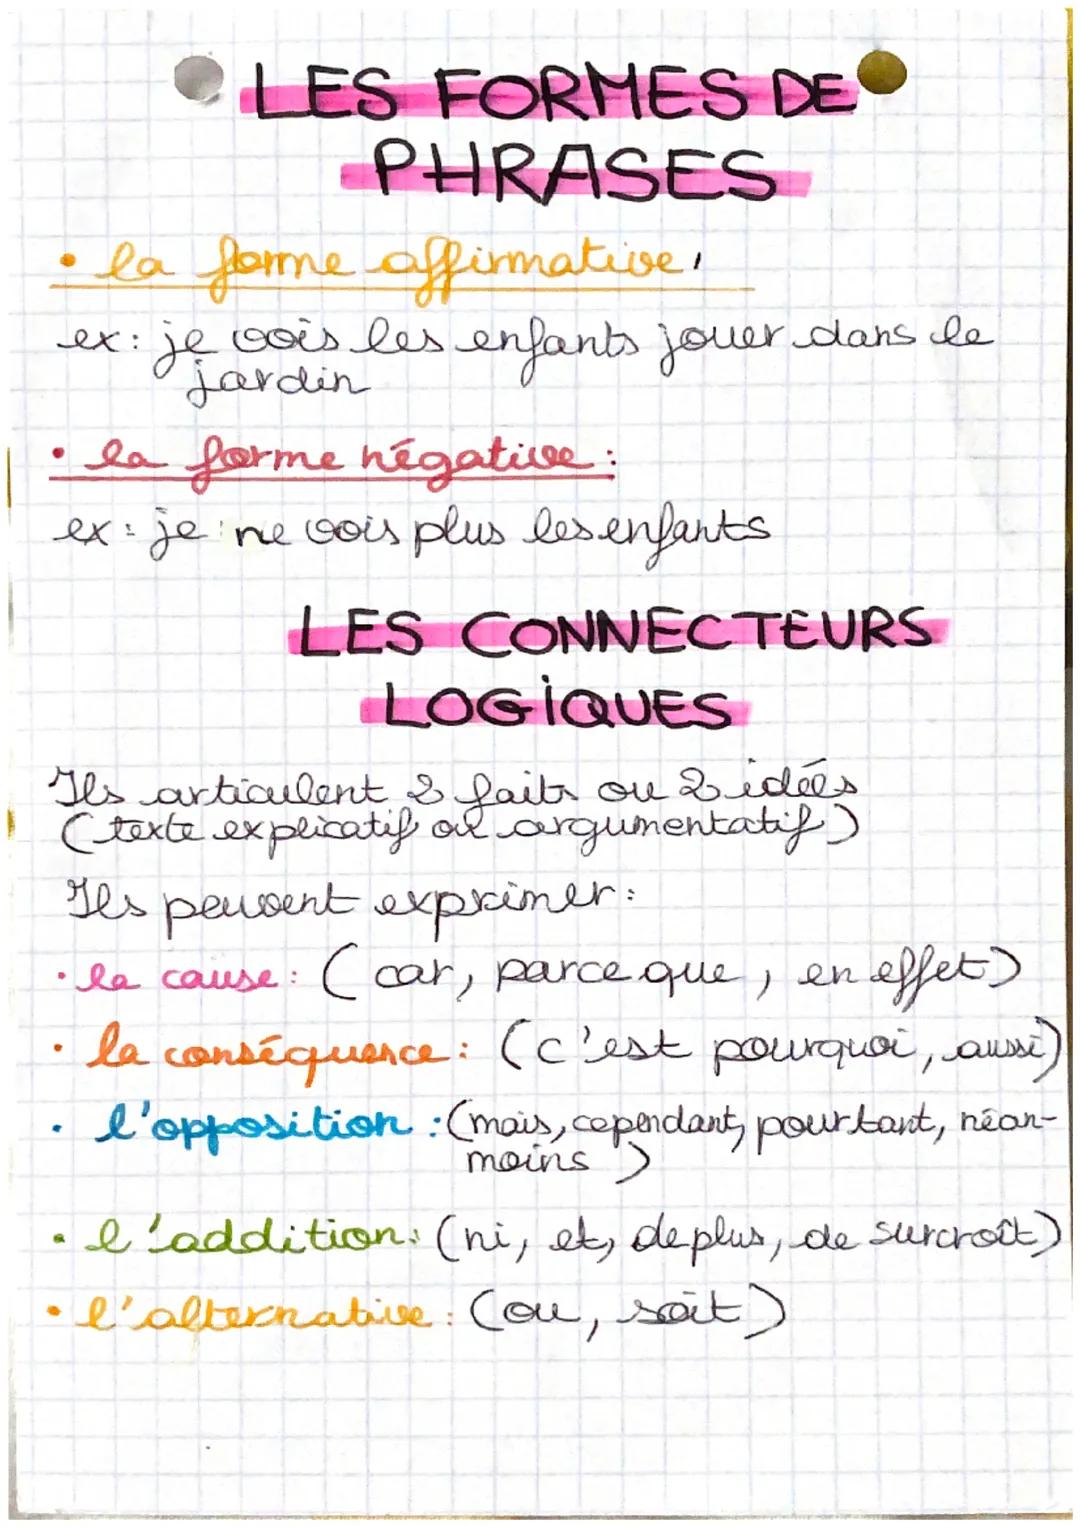 LES FORMES DE
PHRASES
• la forme affirmative :
ex : je vois les enfants jouer dans le
jardin
• la forme négative :
ex : je ne vois plus les enfants
LES CONNECTEURS
LOGIQUES
Ils articulent 2 faits ou 2 idées
(texte explicatif ou argumentatif)
Ils peuvent exprimer :
• la cause : (car, parce que, en effet)
• la conséquence : (c'est pourquoi, aussi)
• l'opposition : (mais, cependant, pourtant, néan-
moins)
• l'addition : (ni, et, de plus, de surcroît)
• l'alternative : (ou, soit)